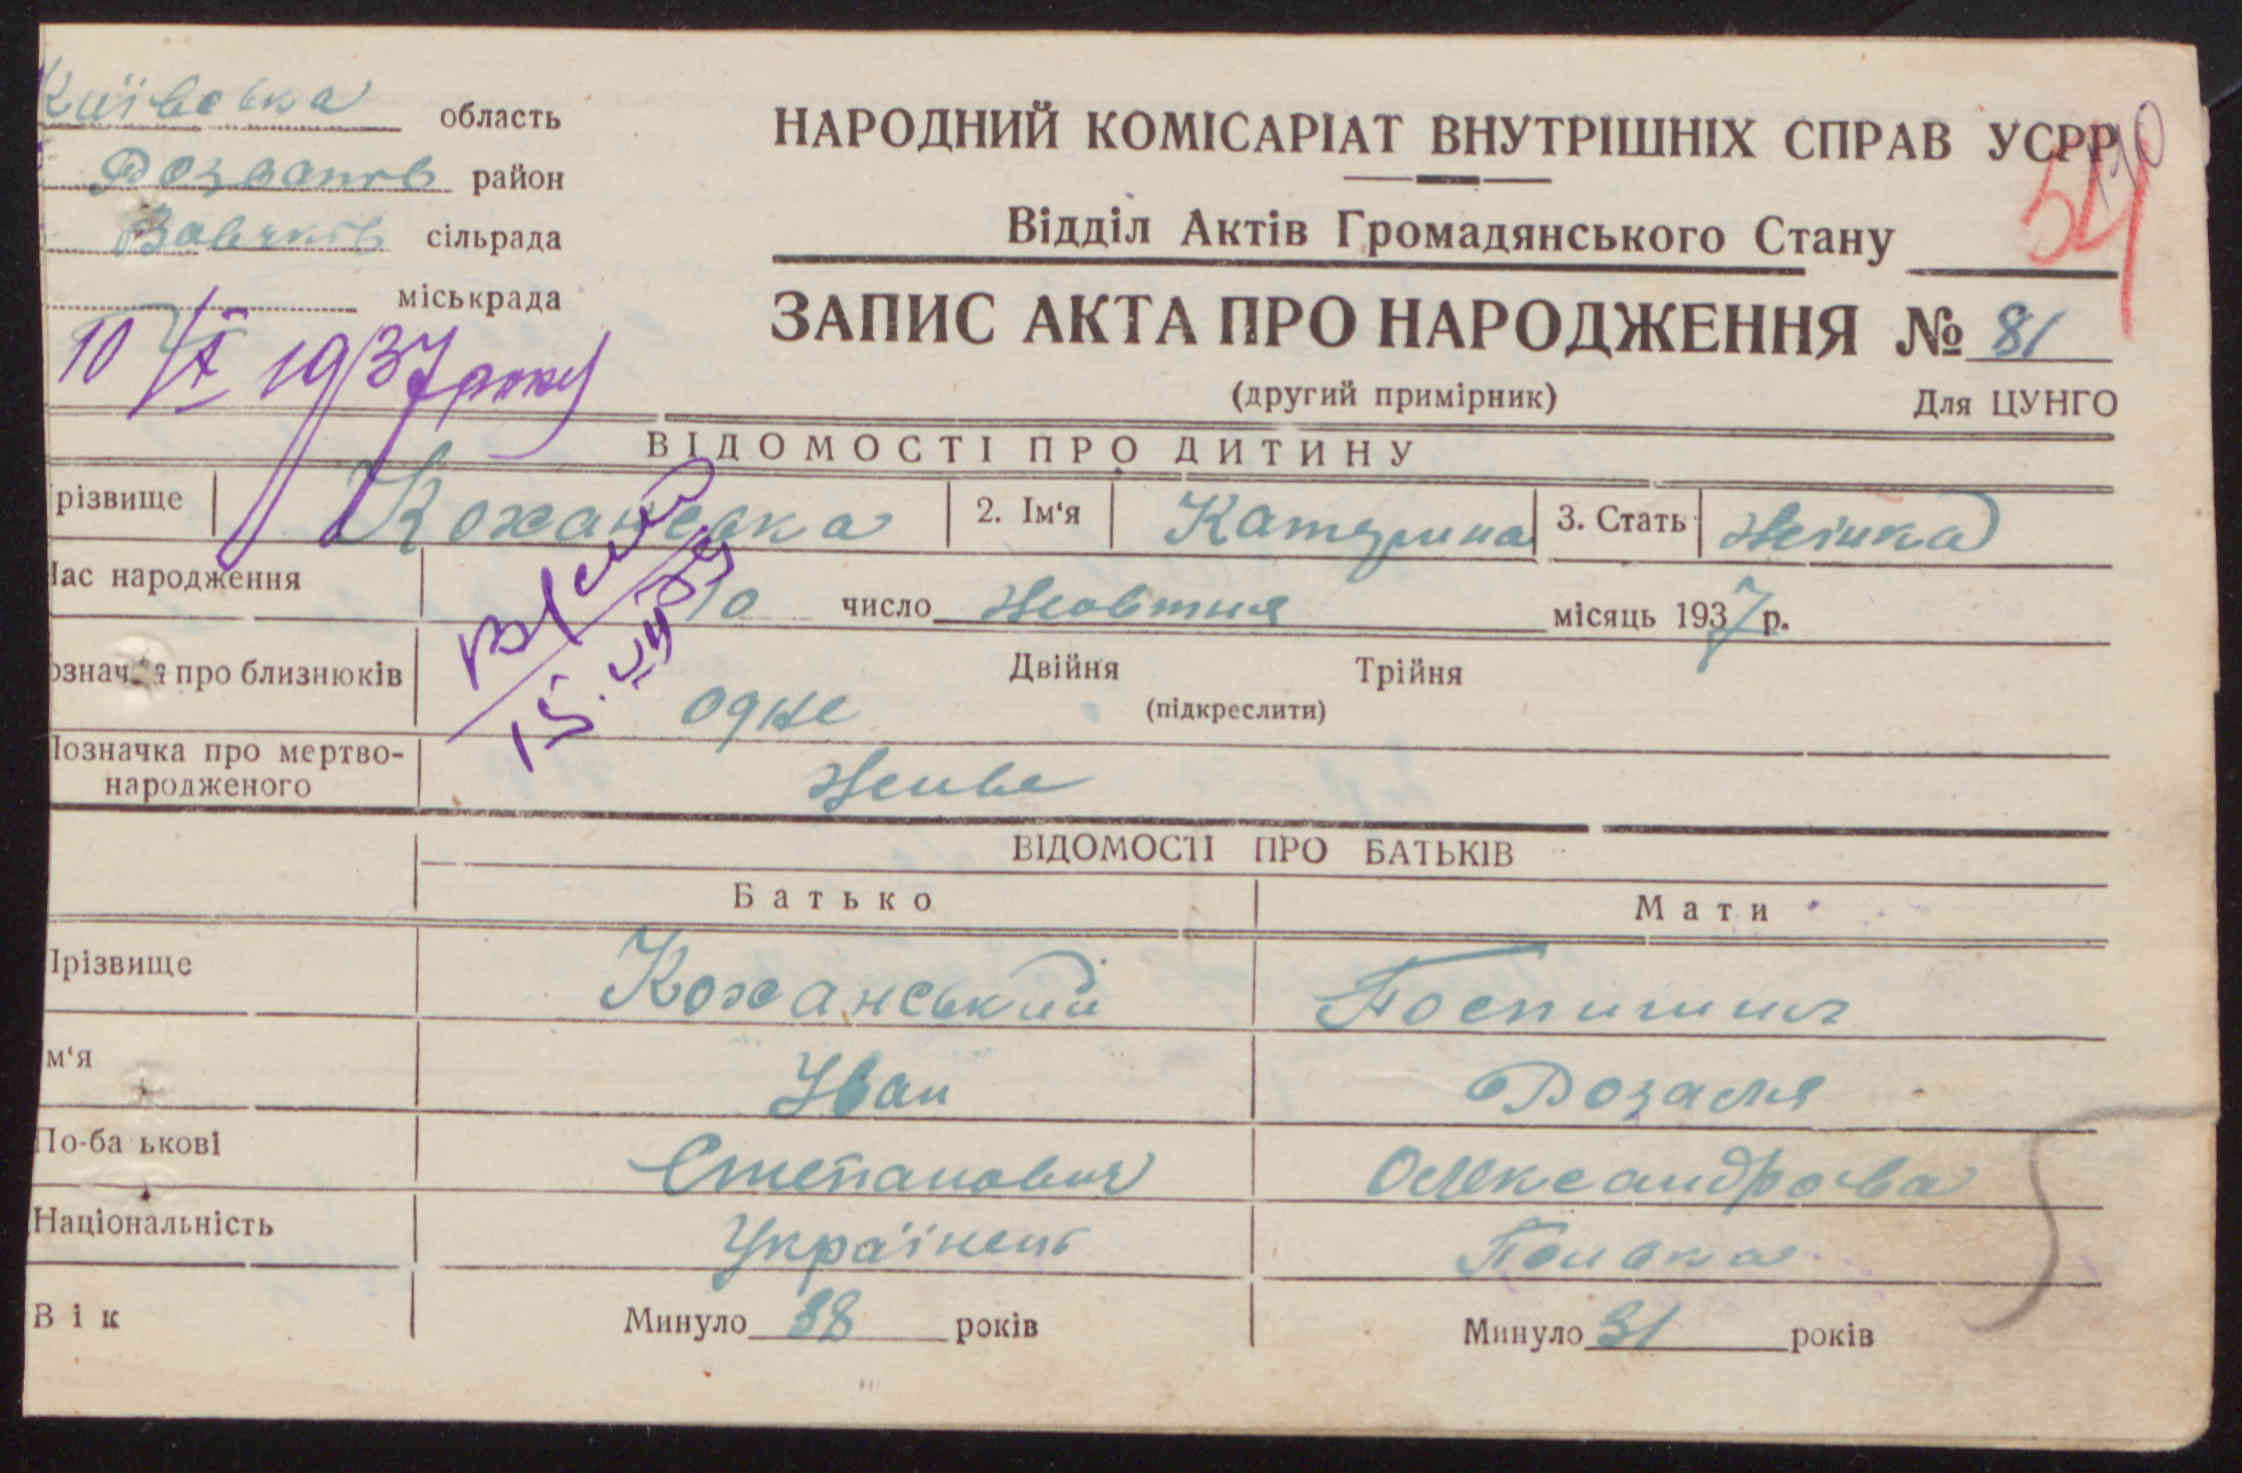 Київська область
Розважів район
сільрада
міськрада
НАРОДНИЙ КОМІСАРІАТ ВНУТРІШНІХ СПРАВ УСРР
54
Відділ Актів Громадянського Стану
ЗАПИС АКТА ПРО НАРОДЖЕННЯ № 81
10/X 1937 року
(другий примірник) Для ЦУНГО
ВІДОМОСТІ ПРО ДИТИНУ
різвище Кожанська 2. Ім'я Катерина 3. Стать жінка
час народження 10 число жовтня місяць 1937 р.
означка про близнюків одне Двійня Трійня
(підкреслити)
Позначка про мертво-
народженого живе
ВІДОМОСТІ ПРО БАТЬКІВ
Батько Мати
Прізвище Кожанський
м'я Іван Розалія
По-ба ькові Степанович Олександрова
Національність Українець Полька
Вік Минуло 38 років Минуло 31 років